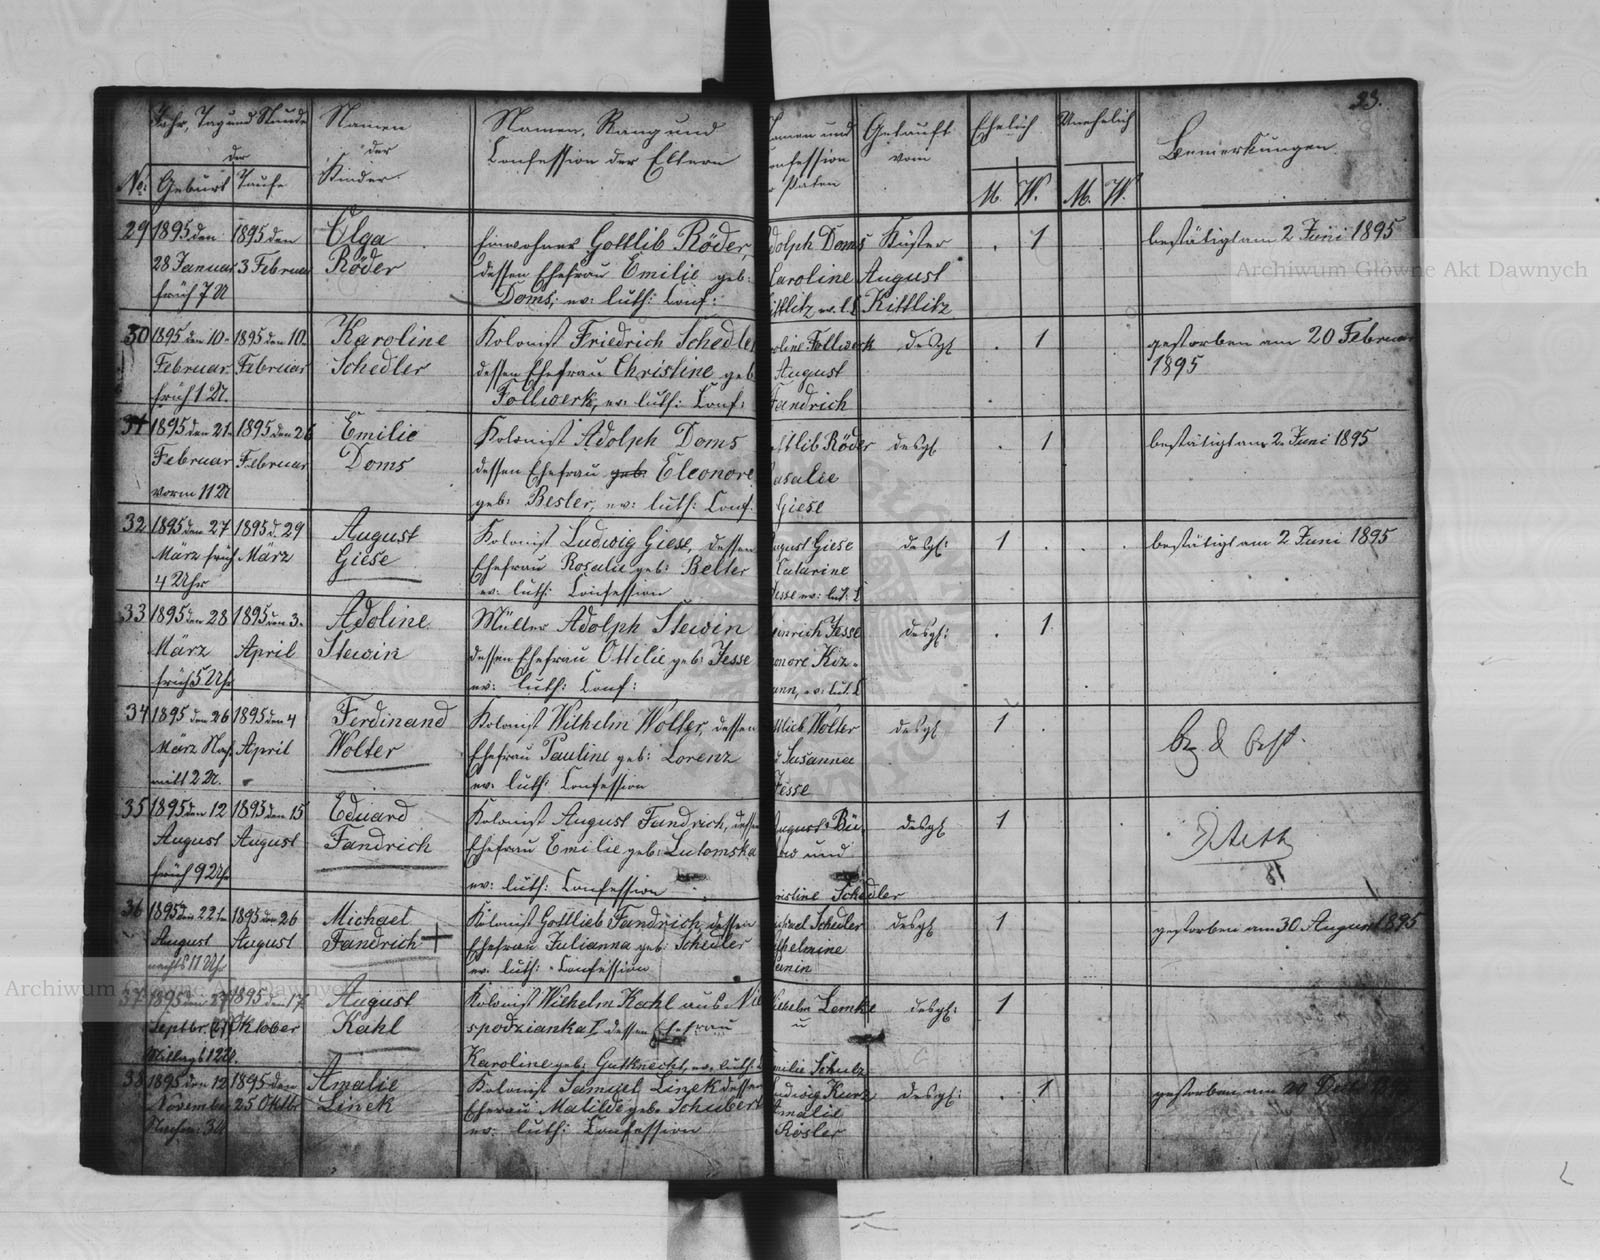 33.
Jahr, Tag und Stunde
der
No: Geburt Taufe
Namen
der
Kinder.
Namen, Rang und
Confession der Eltern
Namen und
Confession
Paten
Getauft
vom
Ehelich
M. W.
Unehelich
M. W.
Bemerkungen.
29 1895 den 1895 den Olga Einwohner Gottlib Röder, Adolph Doms Küster . 1 bestätigt am 2 Juni 1895
28 Januar 3 Februar Röder dessen Ehefrau Emilie geb: Caroline August
früh 7 U Doms, ev: luth: Conf: Kittlitz ev. l. Kittlitz
30 1895 den 10. 1895 den 10. Karoline Kolonist Friedrich Schedler Follwerk desgl . 1 gestorben am 20 Februar
Februar Februar Schedler dessen Ehefrau Christine geb August 1895
früh 1 U. Follwerk, ev: luth: Conf: Fandrich
31 1895 den 21. 1895 den 26 Emilie Kolonist Adolph Doms Gottlib Röder desgl . 1 bestätigt am 2 Juni 1895
Februar Februar Doms dessen Ehefrau geb. Eleonore Rosalie
vorm 11 U geb: Besler, ev: luth: Conf. Giese
32 1895 den 27 1895 d. 29 August Kolonist Ludwig Giese, dessen August Giese desgl: 1 . . . bestätigt am 2 Juni 1895
März früh März Giese Ehefrau Rosalie geb: Belter Catarine
4 Uhr ev: luth: Confession Jesse ev: lut: C
33 1895 den 28 1895 den 3. Adoline Müller Adolph Stewin Heinrich Jesse desgl: . 1.
März April Stewin dessen Ehefrau Ottilie geb: Jesse
früh 5 Uhr ev: luth: Conf: ev: lut. C
34 1895 den 26 1895 den 4 Ferdinand Kolonist Wilhelm Wolter, dessen Wolter desgl 1 .
März Nach April Wolter Ehefrau Pauline geb: Lorenz Susanna
mitt 2 U. ev: luth: Confession Jesse
35 1895 den 12 1895 den 15 Eduard Kolonist August Fandrich, dessen August desgl 1
August August Fandrich Ehefrau Emilie geb: Lutomska und
früh 9 Uhr ev: luth: Confession Christine Schedler
36 1895 den 22 1895 den 26 Michael Kolonist Gottlieb Fandrich, dessen Michael Schedler desgl 1 gestorben am 30 August 1895
August August Fandrich + Ehefrau Julianna geb: Schedler
nachts 11 Uhr ev: luth: Confession
37 1895 den 27 1895 den 17 August Kolonist Wilhelm Kahl aus Lemke desgl: 1
Septbr. Oktober Kahl spodzianka dessen Ehefrau u
Karoline geb: Gutknecht, ev: luth: Emilie Schulz
38 1895 den 12 1895 den Amalie Kolonist Samuel Linek dessen Ludwig Kurz desgl: . 1 gestorben am 20
November 25 Oktbr Linek Ehefrau Matilde geb. Schubert Amalie
ev: luth: Confession Rösler
Archiwum Główne Akt Dawnych
Archiwum Główne Akt Dawnych